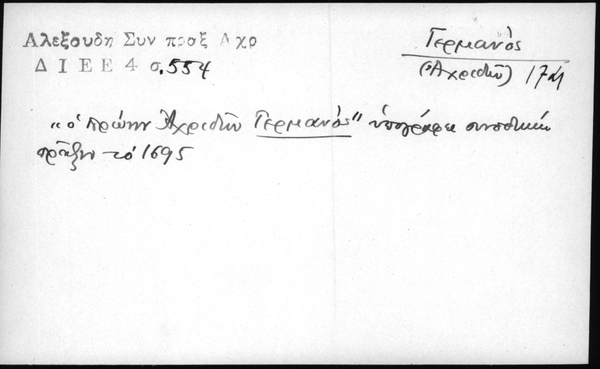 Αλεξουδη Συν πραξ Αχρ
Δ Ι Ε Ε 4 σ.554
Γερμανὸς
(Ἀχριδῶν) 17
"ὁ πρώην Ἀχριδῶν Γερμανὸς" ὑπογράφει συνοδικὴν
πρᾶξιν τὸ 1695